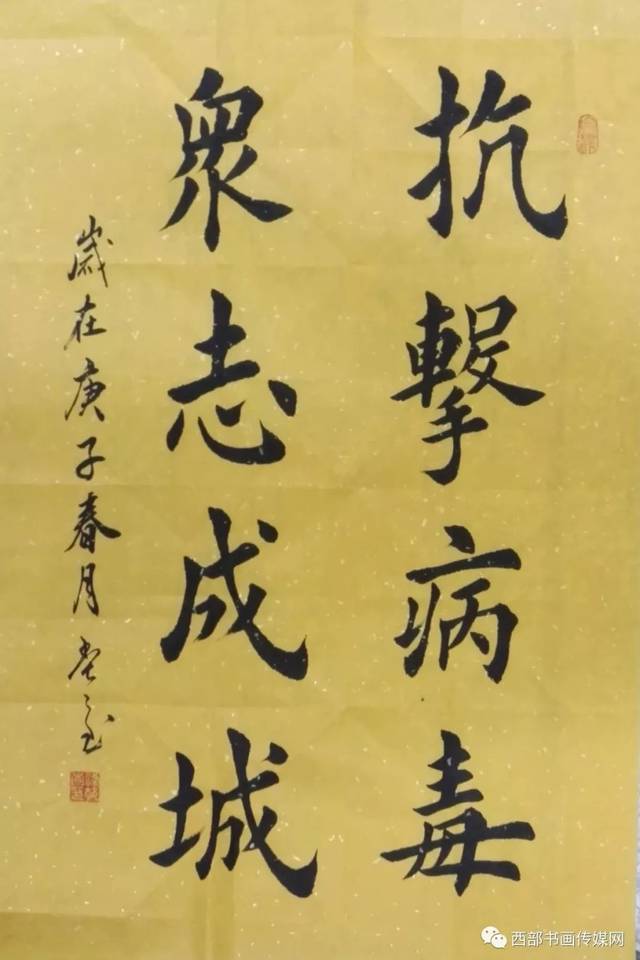 抗擊病毒
眾志成城
歲在庚子春月
西部书画传媒网